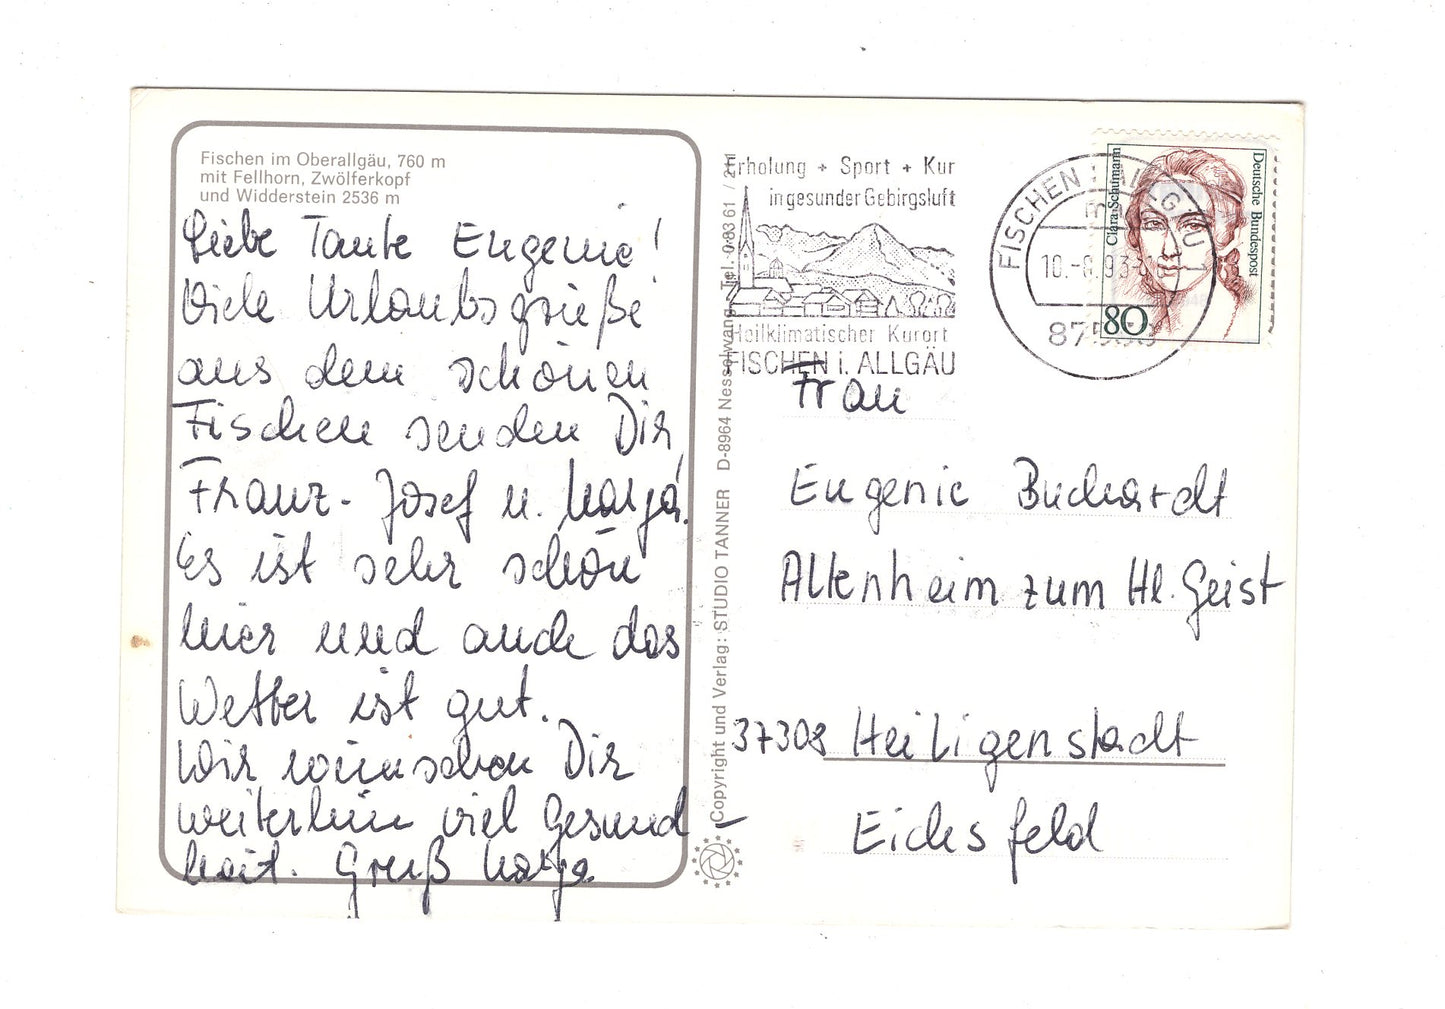 Fischen im Oberallgäu, 760 m
mit Fellhorn, Zwölferkopf
und Widderstein 2536 m
Liebe Tante Eugenie!
Viele Urlaubsgrüße
aus dem schönen
Fischen senden Dir
Franz-Josef u. Katja.
Es ist sehr schön
hier und auch das
Wetter ist gut.
Wir wünschen Dir
weiterhin viel Gesund-
heit. Gruß Katja
Copyright und Verlag: STUDIO TANNER D-8964 Nesselwang Tel. 0 83 61 /
Erholung + Sport + Kur
in gesunder Gebirgsluft
Heilklimatischer Kurort
FISCHEN i. ALLGÄU
FISCHEN i. ALLGÄU
10.-8.93
Clara Schumann
Deutsche Bundespost
80
Frau
Eugenie Buchardt
Altenheim zum Hl. Geist
37308 Heiligenstadt
Eichsfeld